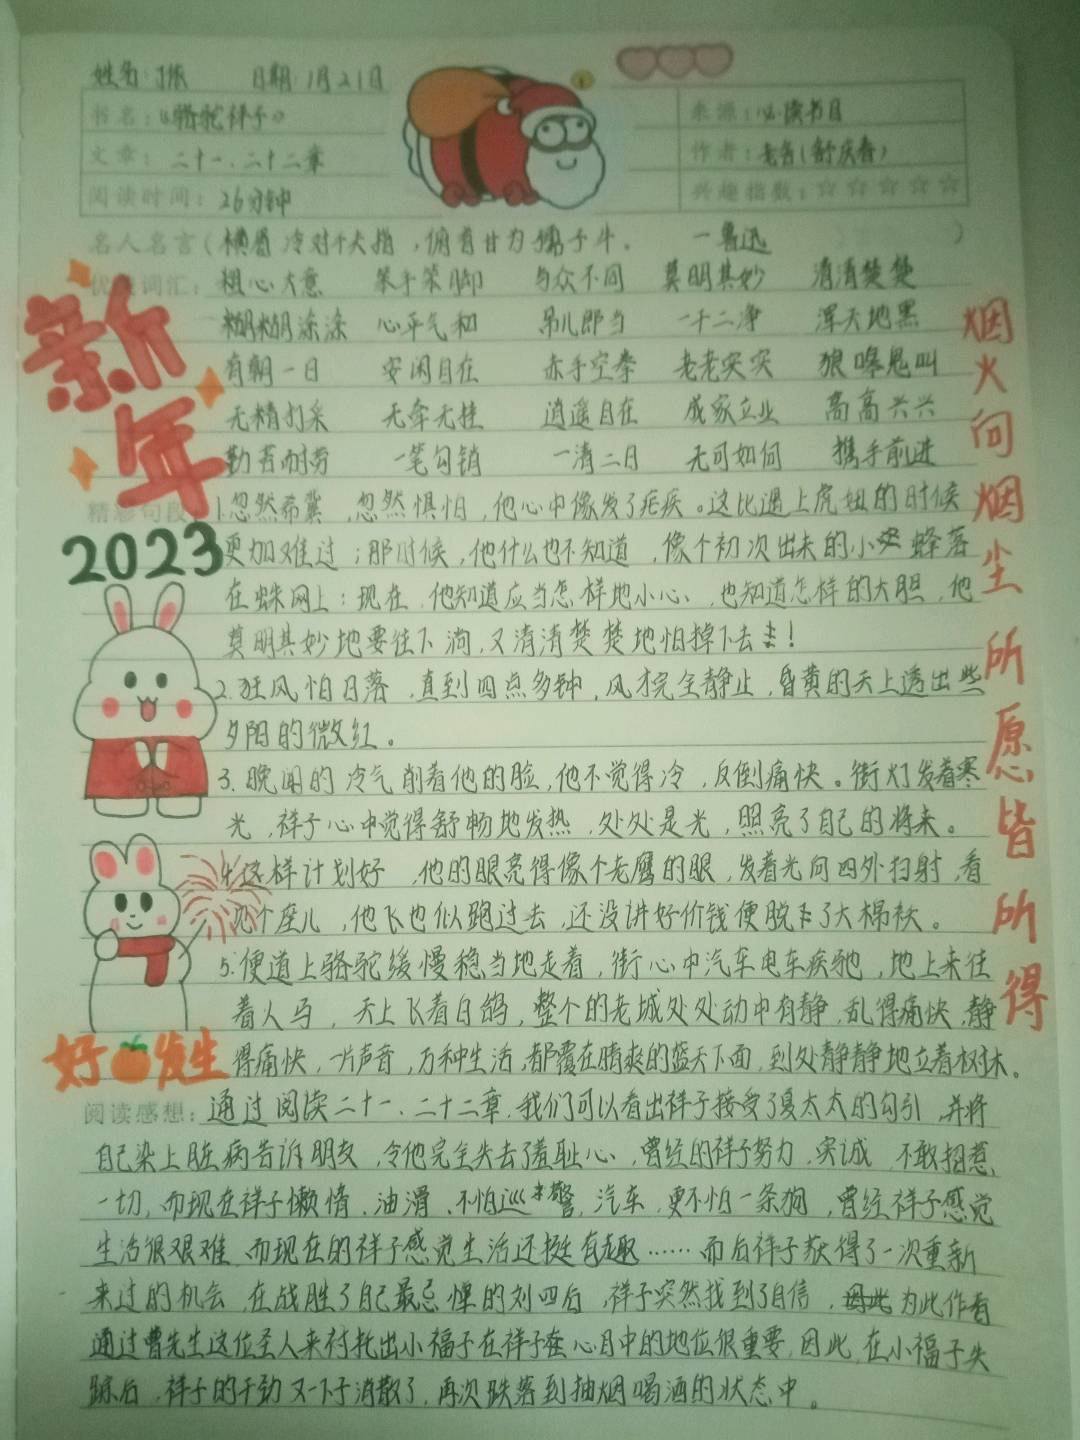 姓名: 日期:1月21日
书名:《骆驼祥子》 来源:必读书目
文章:二十一、二十二章 作者:老舍(舒庆春)
阅读时间:26分钟 兴趣指数:☆☆☆☆☆
名人名言(横眉冷对千夫指,俯首甘为孺子牛. —鲁迅 )
优美词汇:粗心大意 笨手笨脚 与众不同 莫明其妙 清清楚楚
糊糊涂涂 心平气和 吊儿郎当 一干二净 浑天地黑
有朝一日 安闲自在 赤手空拳 老老实实 狼嚎鬼叫
无精打采 无牵无挂 逍遥自在 成家立业 高高兴兴
勤苦耐劳 一笔勾销 一清二日 无可如何 携手前进
精彩句段 1.忽然希冀,忽然惧怕,他心中像发了疟疾。这比遇上虎妞的时候
更加难过;那时候,他什么也不知道,像个初次出来的小蜂落
在蛛网上:现在,他知道应当怎样地小心、也知道怎样的大胆,他
莫明其妙地要往下淌,又清清楚楚地怕掉下去!
2.狂风怕日落,直到四点多钟,风才完全静止,昏黄的天上透出些
夕阳的微红。
3.晚间的冷气削着他的脸,他不觉得冷,反倒痛快。街灯发着寒
光,祥子心中觉得舒畅地发热,处处是光,照亮了自己的将来。
4.这样计划好,他的眼亮得像个老鹰的眼,发着光向四外扫射,看
见个座儿,他飞也似跑过去,还没讲好价钱便脱下了大棉袄。
5.便道上骆驼缓慢稳当地走着,街心中汽车电车疾驰,地上来往
着人马,天上飞着白鸽,整个的老城处处动中有静,乱得痛快,静
得痛快,一片声音,万种生活,都覆在晴爽的蓝天下面,到处静静地立着树木。
阅读感想:通过阅读二十一、二十二章,我们可以看出祥子接受了夏太太的勾引,并将
自己染上脏病告诉朋友,令他完全失去了羞耻心,曾经的祥子努力,实诚,不敢招惹
一切,而现在祥子懒惰、油滑、不怕巡警,汽车,更不怕一条狗,曾经祥子感觉
生活很艰难,而现在的祥子感觉生活还挺有趣……而后祥子获得了一次重新
来过的机会,在战胜了自己最忌惮的刘四后,祥子突然找到了自信,因此为此作者
通过曹先生这位圣人来衬托出小福子在祥子在心目中的地位很重要,因此,在小福子失
踪后,祥子的干劲又一下子消散了,再次跌落到抽烟喝酒的状态中。
新年
2023
好发生
烟火向烟尘 所愿皆所得